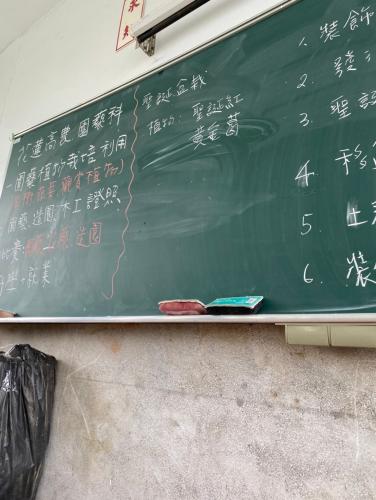 花蓮高農 園藝科
一園藝植物栽培利用
觀賞植物)
園藝 造園 木工 證照
造園
升學、就業
聖誕盆栽:
植物: 聖誕紅
黃金葛
1. 裝飾
2. 發
3. 聖誕
4. 移
5. 土
6. 裝